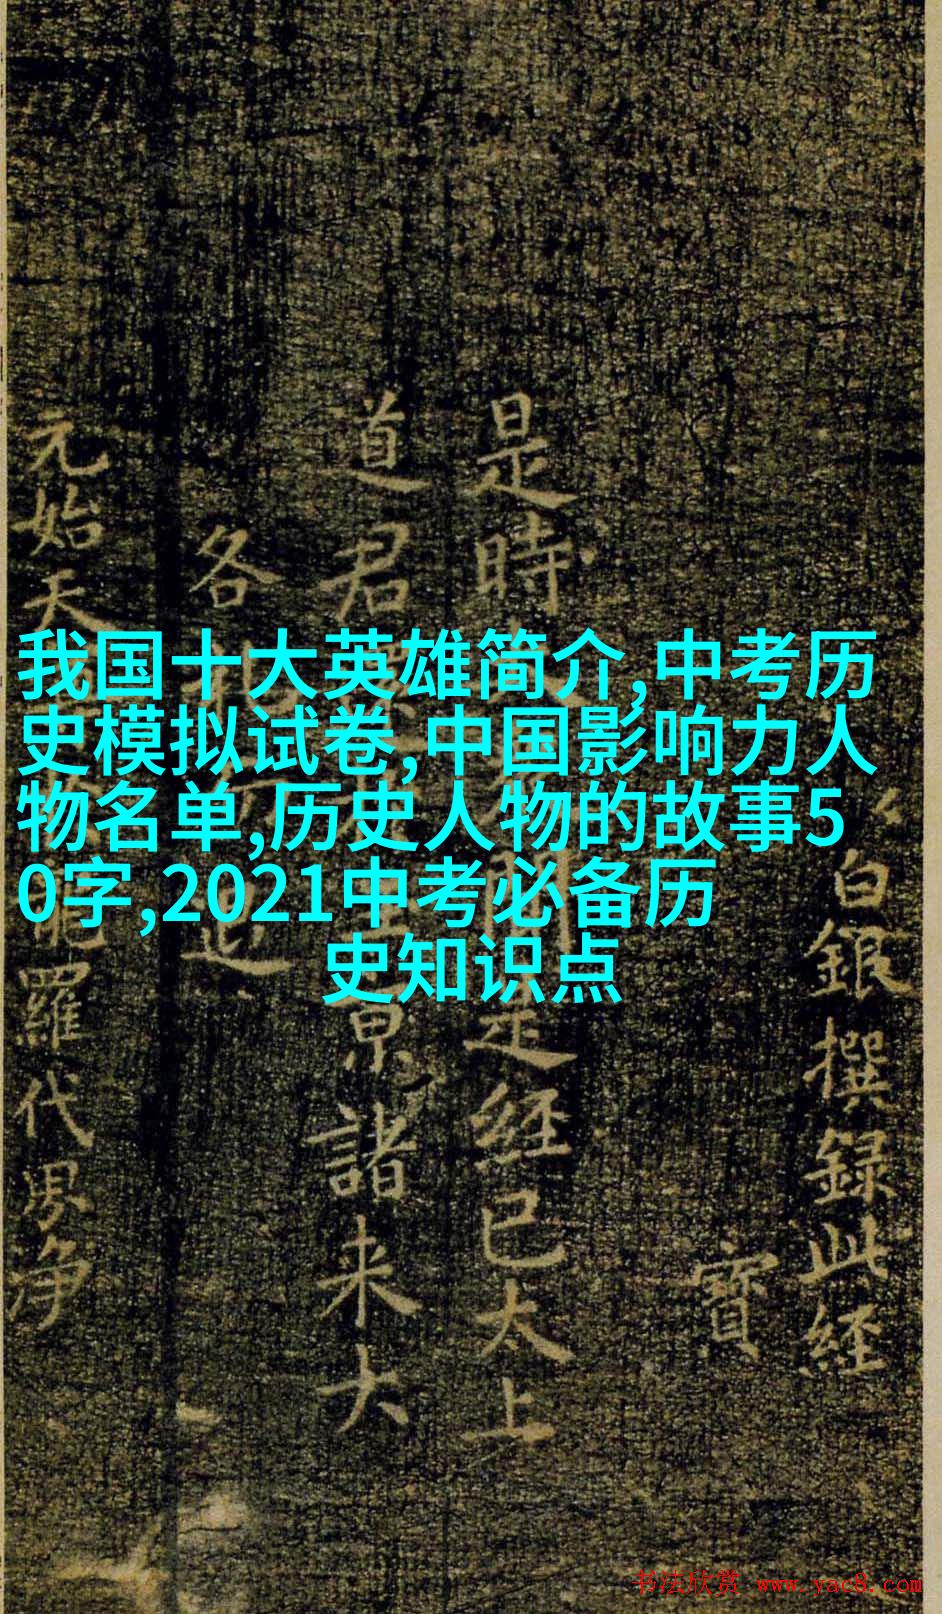 我国十大英雄简介,中考历
史模拟试卷,中国影响力人
物名单,历史人物的故事5
0字,2021中考必备历
史知识点
白銀撰録此經
寶
是時
是經已太上
道君
京諸来大
各
元始天
羅代界净
书法欣赏 www.yac8.com